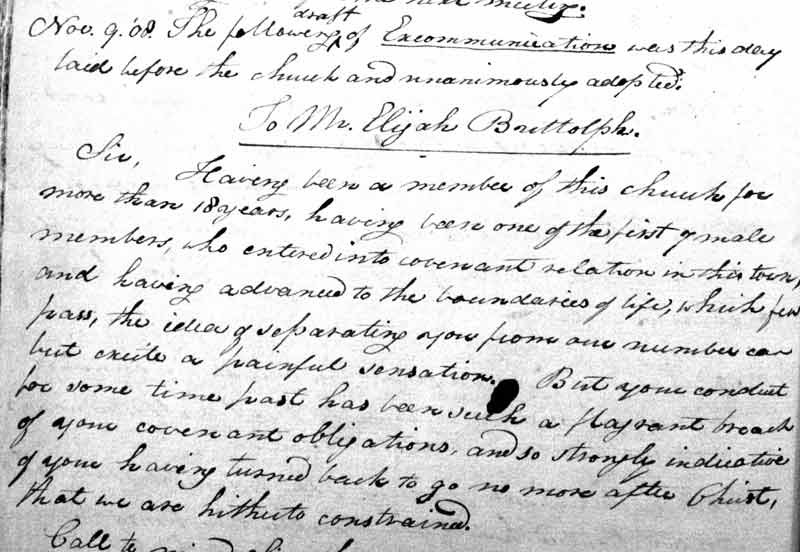 next meeting.
Nov. 9. '08. The following draft of Excommunication was this day
laid before the church and unanimously adopted.
To Mr. Elijah Buttolph.
Sir, Having been a member of this church for
more than 18 years, having been one of the first 7 male
members, who entered into covenant relation in this town,
and having advanced to the boundaries of life, which few
pass, the idea of separating you from our number can
but excite a painful sensation. But your conduct
for some time past has been such a flagrant breach
of your covenant obligations, and so strongly indicative
of your having turned back to go no more after Christ,
that we are hitherto constrained.
Call to mind